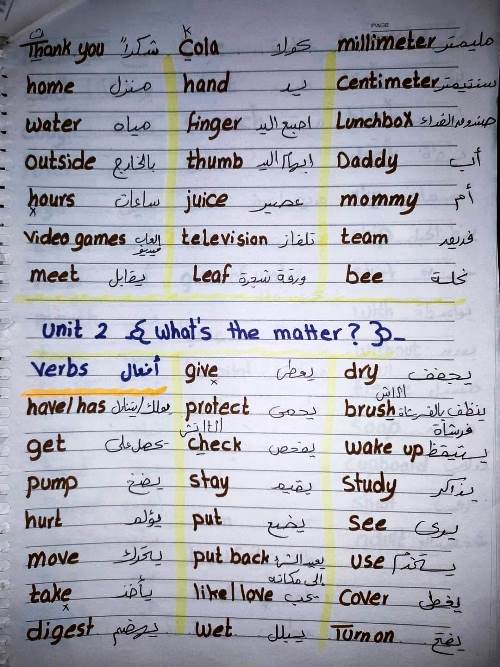 PAGE
Thank you شكراً Cola كولا millimeter مليمتر
home منزل hand يد Centimeter سنتيمتر
water مياه finger اصبع اليد Lunchbox صندوق الغداء
outside بالخارج thumb إبهام اليد Daddy أب
hours ساعات juice عصير mommy أم
video games العاب فيديو television تلفاز team فريق
meet يقابل Leaf ورقة شجرة bee نحلة
Unit 2 { What's the matter? }
verbs أفعال give يعطى dry يجفف
have/has يملك/يتناول protect يحمى brush ينظف بالفرشاة
get يحصل على check يفحص wake up يستيقظ
pump يضخ stay يقيم study يذاكر
hurt يؤلم put يضع see يرى
move يتحرك put back يعيد الشئ الى مكانه use يستخدم
take يأخذ like/love يحب cover يغطى
digest يهضم wet يبلل Turn on يفتح